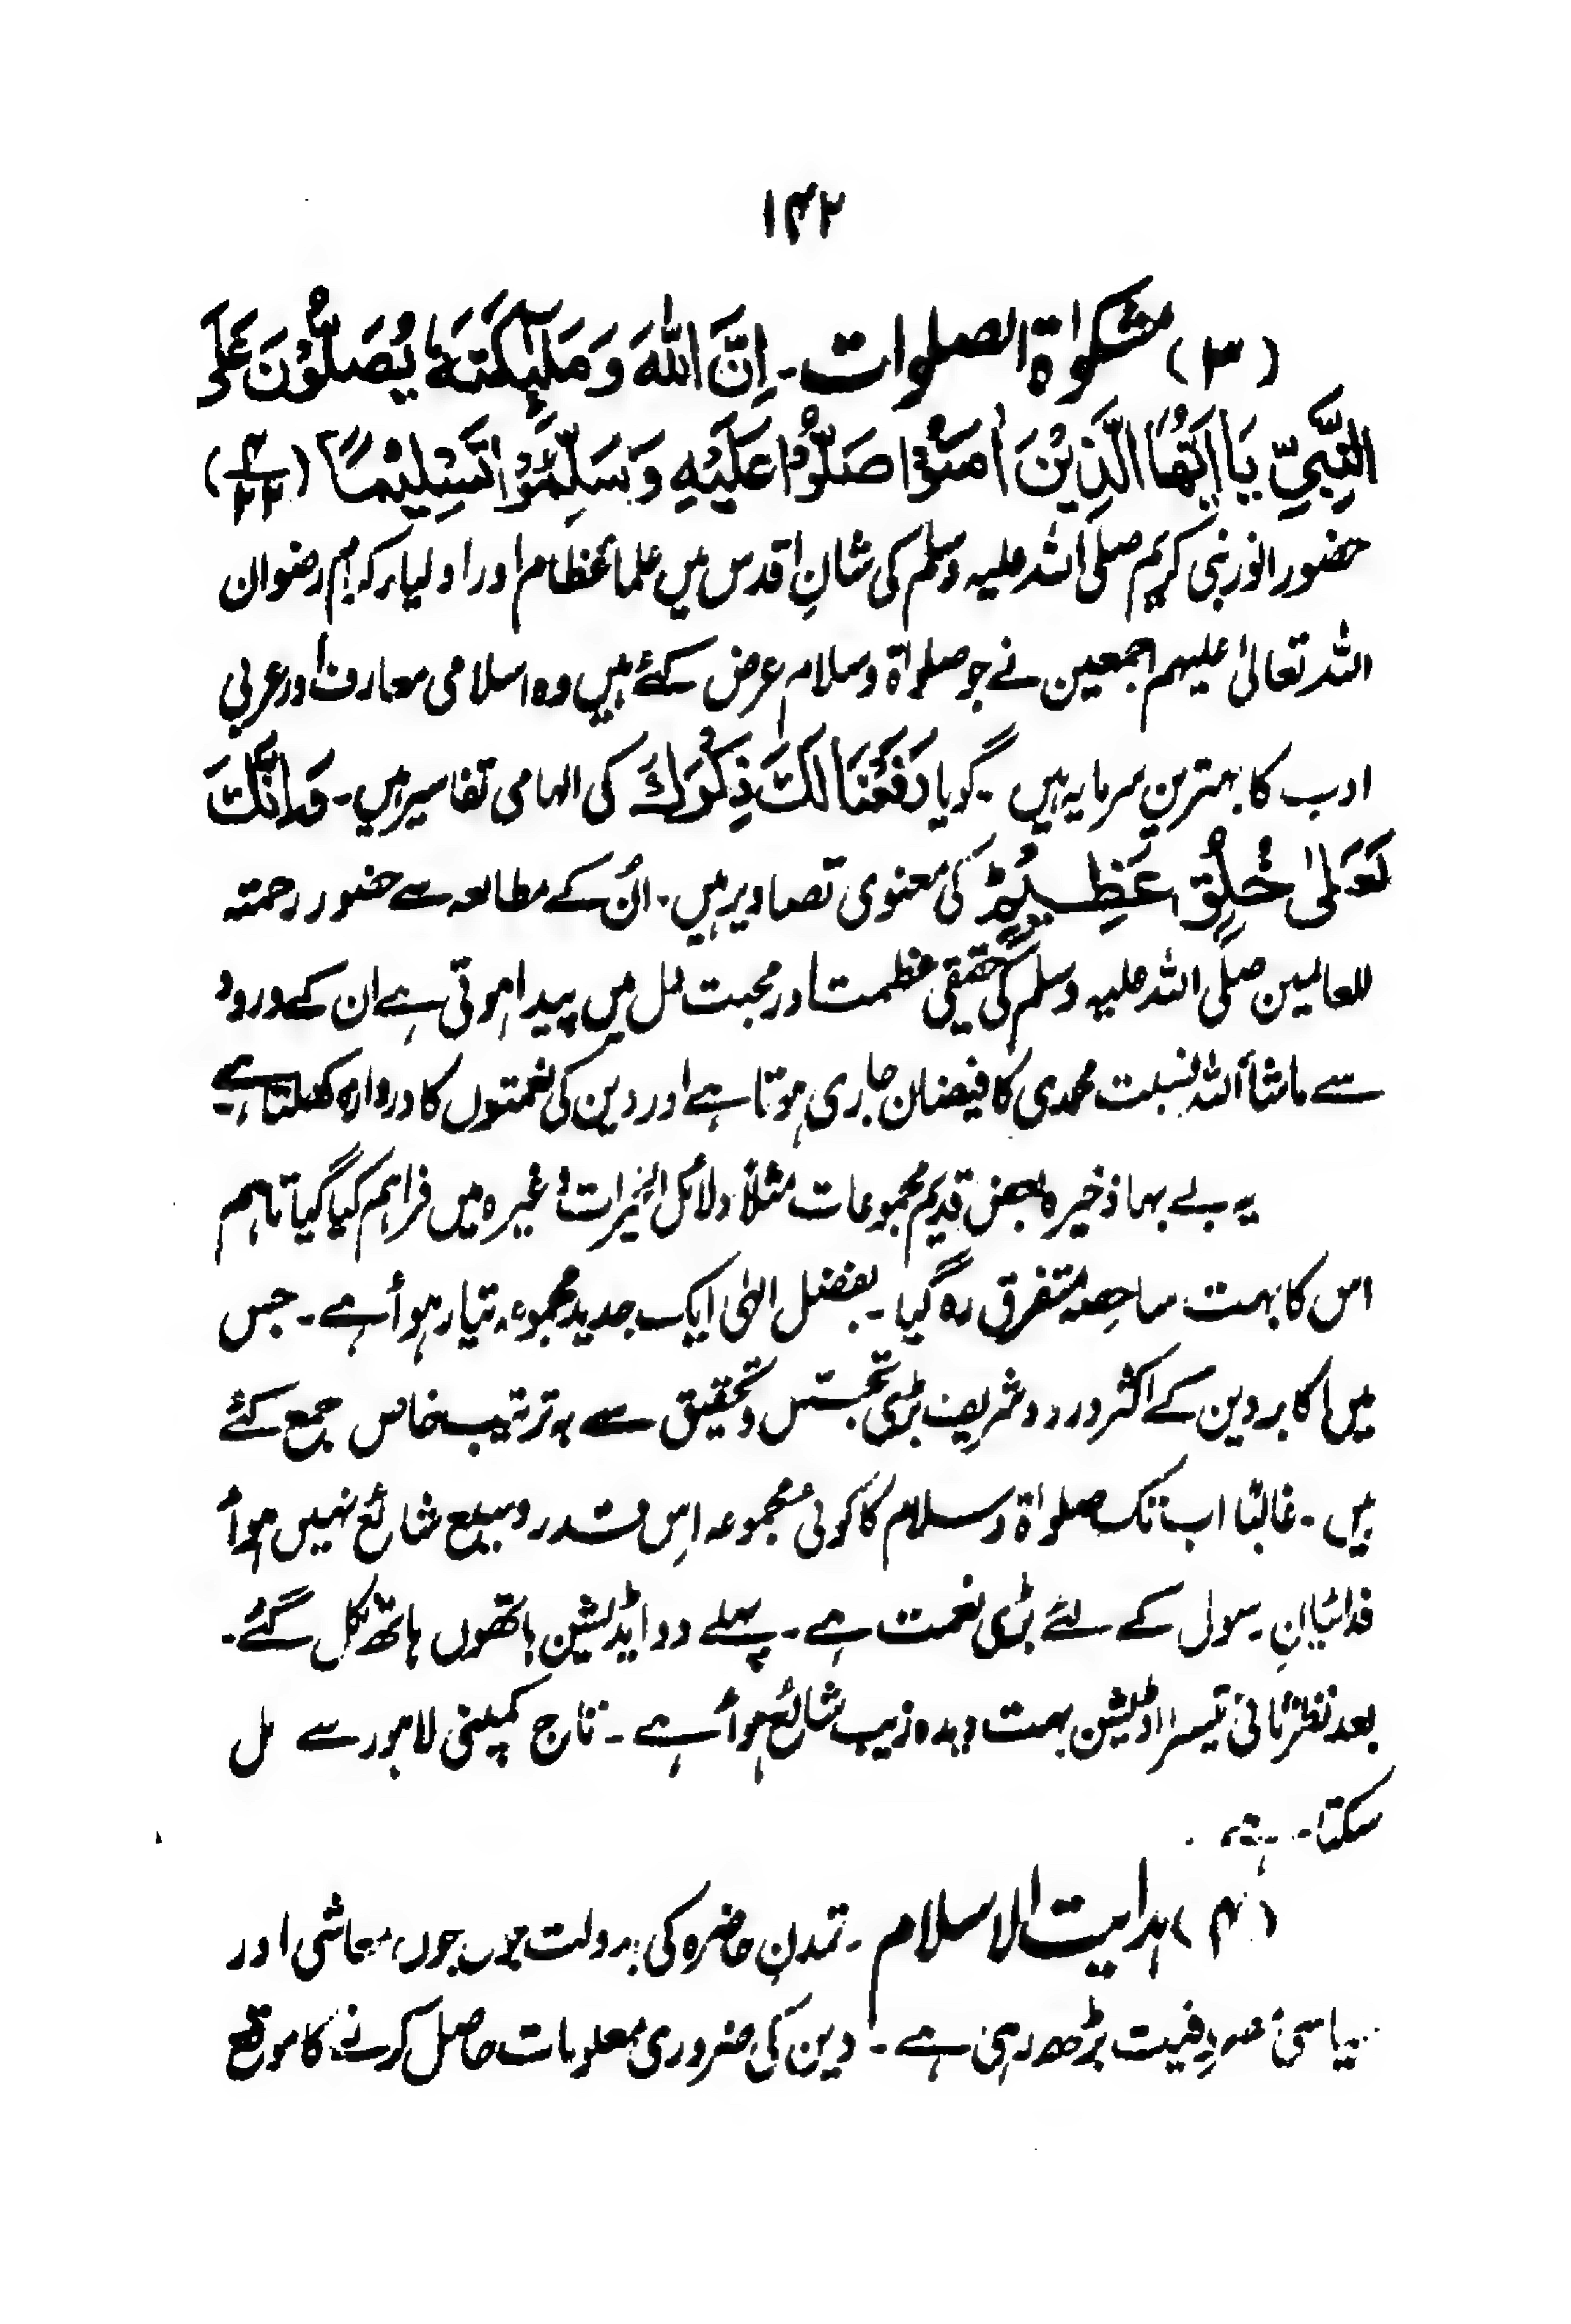 ۱۴۲
(۳) مشکواۃ الصلوات۔ اِنَّ اللّٰہَ وَ مَلٰٓئِکَتَہٗ یُصَلُّوْنَ عَلَی
النَّبِیِّ یَا اَیُّھَا الَّذِیْنَ اٰمَنُوْا صَلُّوْا عَلَیْہِ وَ سَلِّمُوْا تَسْلِیْمًا (۴/۲۲)
حضور انور نبی کریم صلی اللہ علیہ وسلم کی شانِ اقدس میں علما عظام اور اولیار کرام رضوان
اللہ تعالیٰ علیہم اجمعین نے جو صلواۃ وسلام عرض کئے ہیں وہ اسلامی معارف اور عربی
ادب کا بہترین سرمایہ ہیں۔ گویا رَفَعْنَا لَکَ ذِکْرَکَ کی الہامی تفاسیر ہیں۔ وَ اِنَّکَ
لَعَلیٰ خُلُقٍ عَظِیْمٍ کی معنوی تصاویر ہیں۔ اُن کے مطالعہ سے حضور رحمتہ
للعالمین صلی اللہ علیہ وسلم کی حقیقی عظمت اور محبت دل میں پیدا ہوتی ہے ان کے ورود
سے ماشأ اللہ نسبت محمدی کا فیضان جاری ہوتا ہے اور دین کی نعمتوں کا دروازہ کھلتا ہے
یہ بے بہا ذخیرہ بعض قدیم مجموعات مثلاً دلائل الخیرات وغیرہ میں فراہم کیا گیا تاہم
اس کا بہت سا حصہ متفرق رہ گیا۔ بفضل الٰہی ایک جدید مجموعہ تیار ہوأ ہے۔ جس
میں اکابر دین کے اکثر درود شریف بڑی تجسّس و تحقیق سے بہ ترتیب خاص جمع کئے
ہیں۔ غالبًا اب تک صلواۃ و سلام کا کوئی مجموعہ اِس قدر وسیع شائع نہیں ہوأ
فدائیانِ رسول کے لئے بڑی نعمت ہے۔ پہلے دو ایڈیشن ہاتھوں ہاتھ نکل گئے۔
بعد نظر ثانی تیسرا اڈیشن بہت دیدہ زیب شائع ہوأ ہے۔ تاج کمپنی لاہور سے مل
سکتا۔ ہے
(۴) ہدایت الاسلام۔ تمدنِ حاضرہ کی بدولت جوں جوں معاشی اور
سیاسی مصروفیت بڑھ رہی ہے۔ دین کی ضروری معلومات حاصل کرنے کا موقع